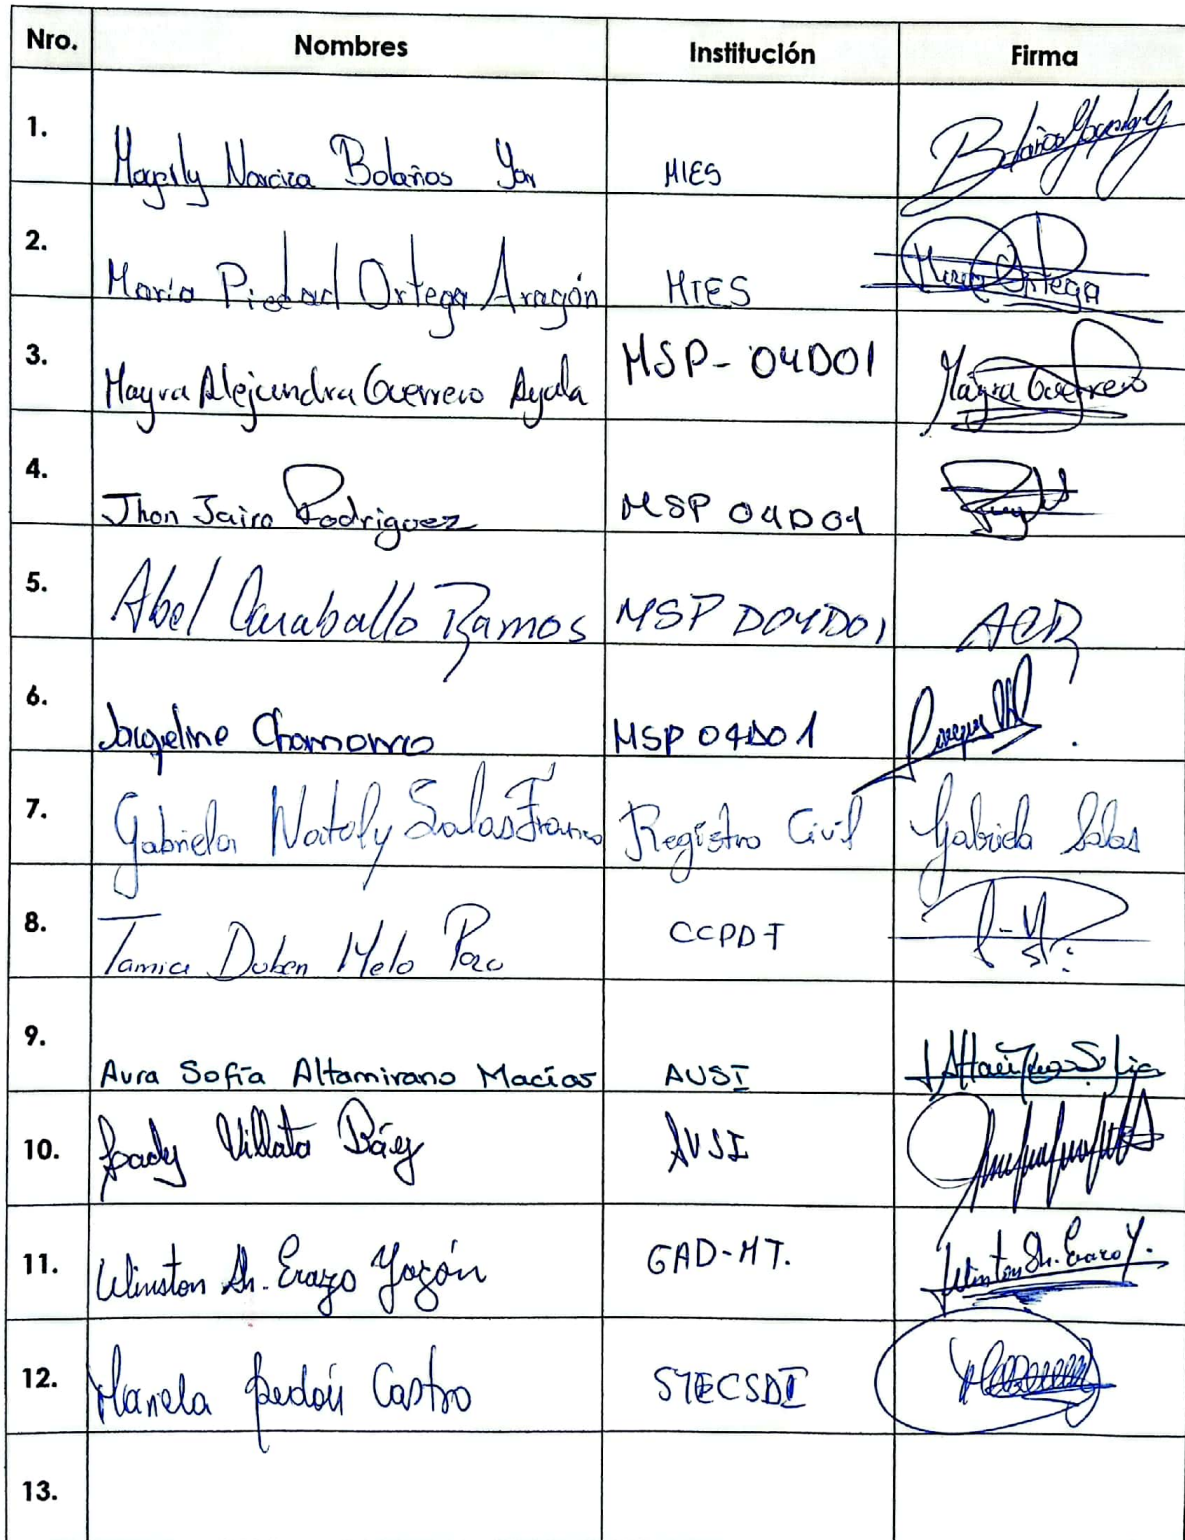 Nro. Nombres Institución Firma
1. Magaly Narciza Bolaños MIES
2. María Piedad Ortega Aragón MIES María Ortega
3. Mayra Alejandra Guerrero Ayala MSP-04D01 Mayra Guerrero
4. Jhon Jairo Rodriguez MSP 04D01
5. Abel Caraballo Ramos MSP D04D01 ACR
6. Jaqueline Chamorro MSP 04D01
7. Gabriela Nataly Salas Franco Registro Civil Gabriela Salas
8. Tamia Duben Melo CCPDT
9. Aura Sofía Altamirano Macías AVSI
10. Villota Báez AVSI
11. Winston Dh. Erazo Yozón GAD-MT. Winston Dh. Erazo Y.
12. Mariela Castro STECSDI
13.